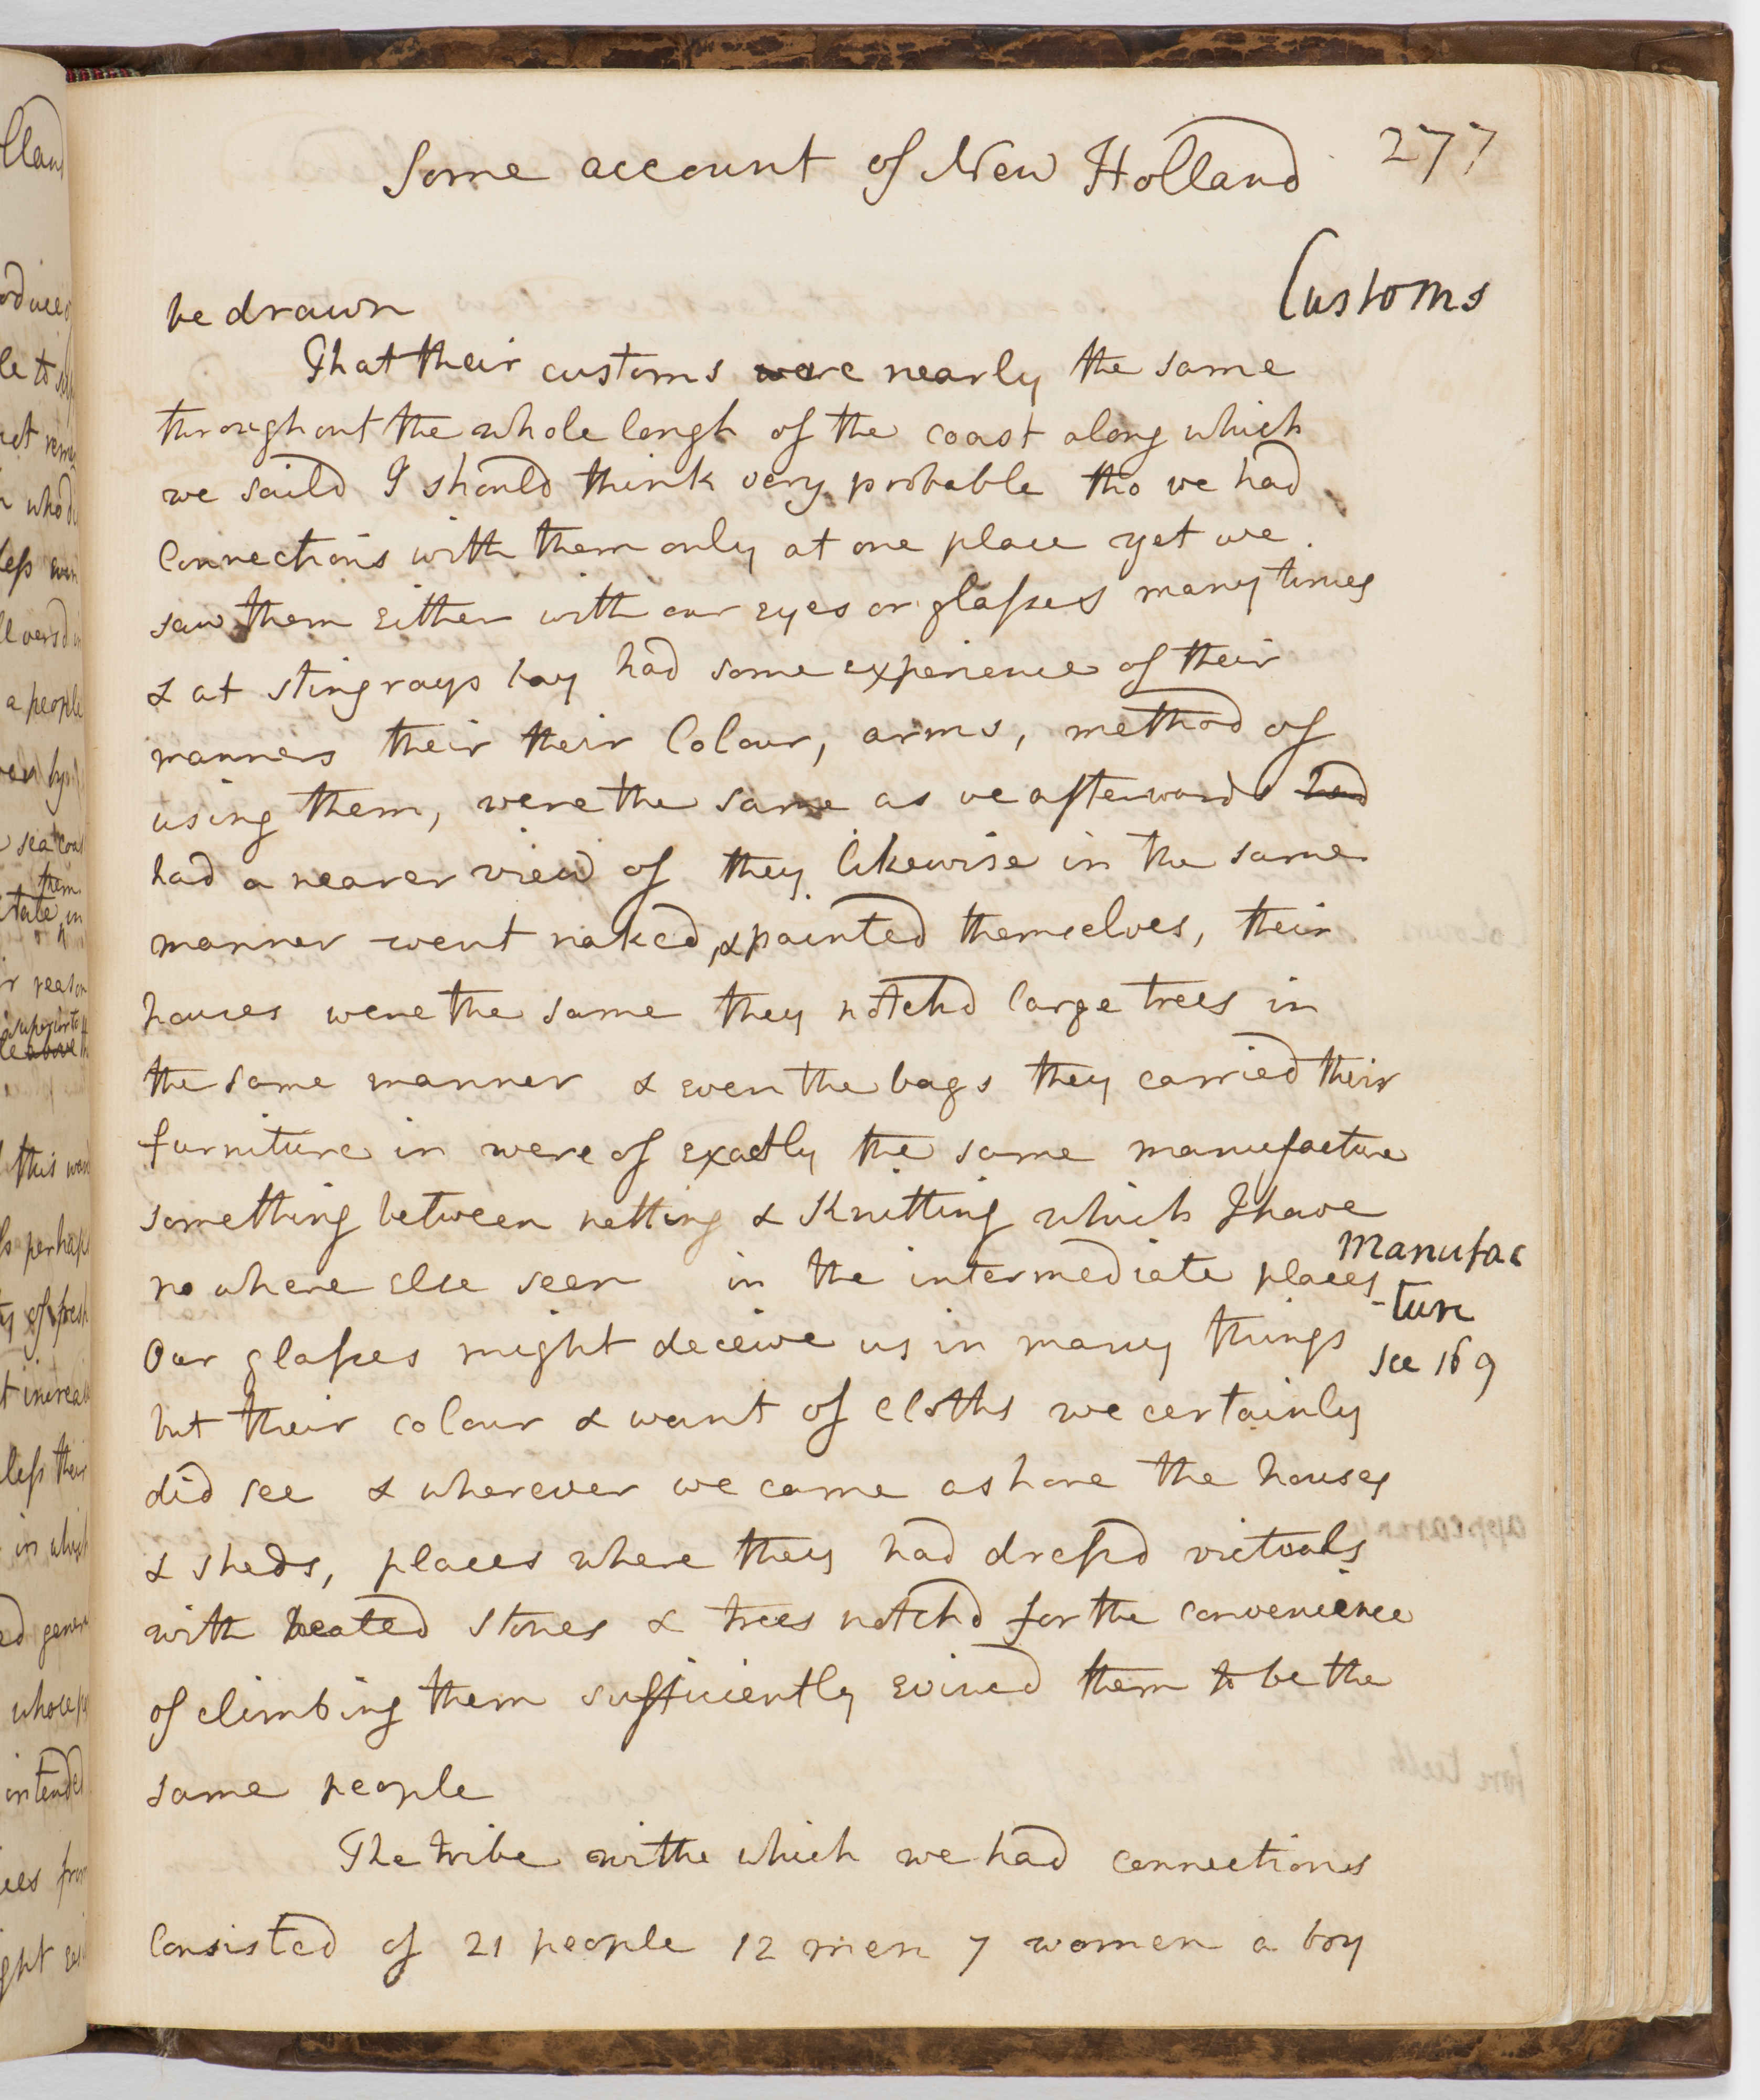 Some account of New Holland 277
Customs
be drawn
That their customs were nearly the same
throughout the whole lengh of the coast along which
we saild I should think very probable tho we had
Connections with them only at one place yet we
saw them either with our eyes or glasses many times
& at stingrays bay had some experience of their
manners their their Colour, arms, method of
using them, were the same as we afterwards had
had a nearer view of they likewise in the same
manner went naked, & painted themselves, their
houses were the same they notchd large trees in
the same manner & even the bags they carried their
furniture in were of exactly the same manufacture
something between netting & Knitting which I have
no where else seen in the intermediate places
Manufac
-ture
see 169
Our glasses might deceive us in many things
but their colour & want of cloths we certainly
did see & wherever we came ashore the houses
& sheds, places where they had dressd victuals
with heated stones & trees notchd for the convenience
of climbing them sufficiently evincd them to be the
same people
The tribe withe which we had connections
Consisted of 21 people 12 men 7 women a boy